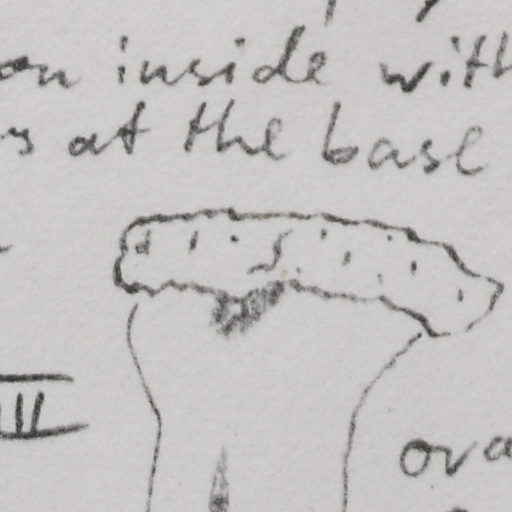 on inside with
at the base
III
ova